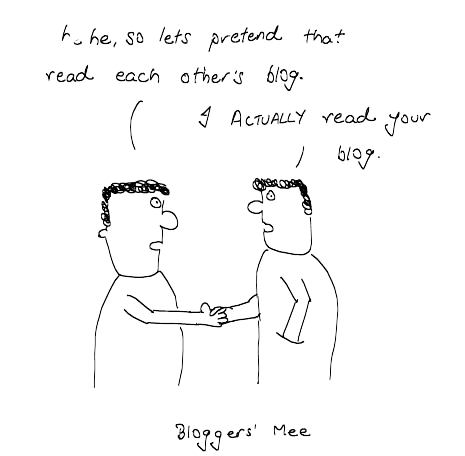 he, so lets pretend that
read each other's blog.
I ACTUALLY read your
blog.
Bloggers' Mee